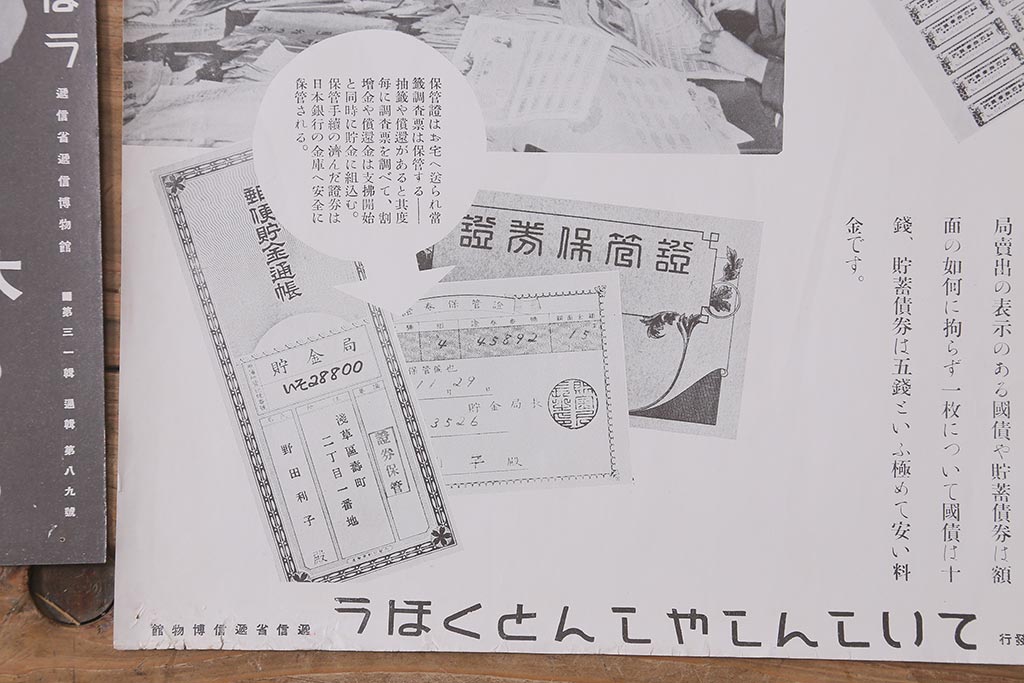 局賣出の表示のある國債や貯蓄債券は額
面の如何に拘らず一枚について國債は十
錢、貯蓄債券は五錢といふ極めて安い料
金です。
保管證はお宅へ送られ當
籤調査票は保管する――
抽籤や償還があると其度
毎に調査票を調べて、割
增金や償還金は支拂開始
と同時に貯金に組込む。
保管手續の濟んだ證券は
日本銀行の金庫へ安全に
保管される。
證券保管證
券保管證
4
45892
15
保管候也
11月29日
貯金局長
3526
子殿
郵便貯金通帳
貯金局
いそ28800
證券保管
淺草區壽町
二丁目一番地
野田利子
殿
ていしんしやしんとくほう
遞信省遞信博物館
發行
ほう
遞信省遞信博物館
第三一輯
週輯
第八九號